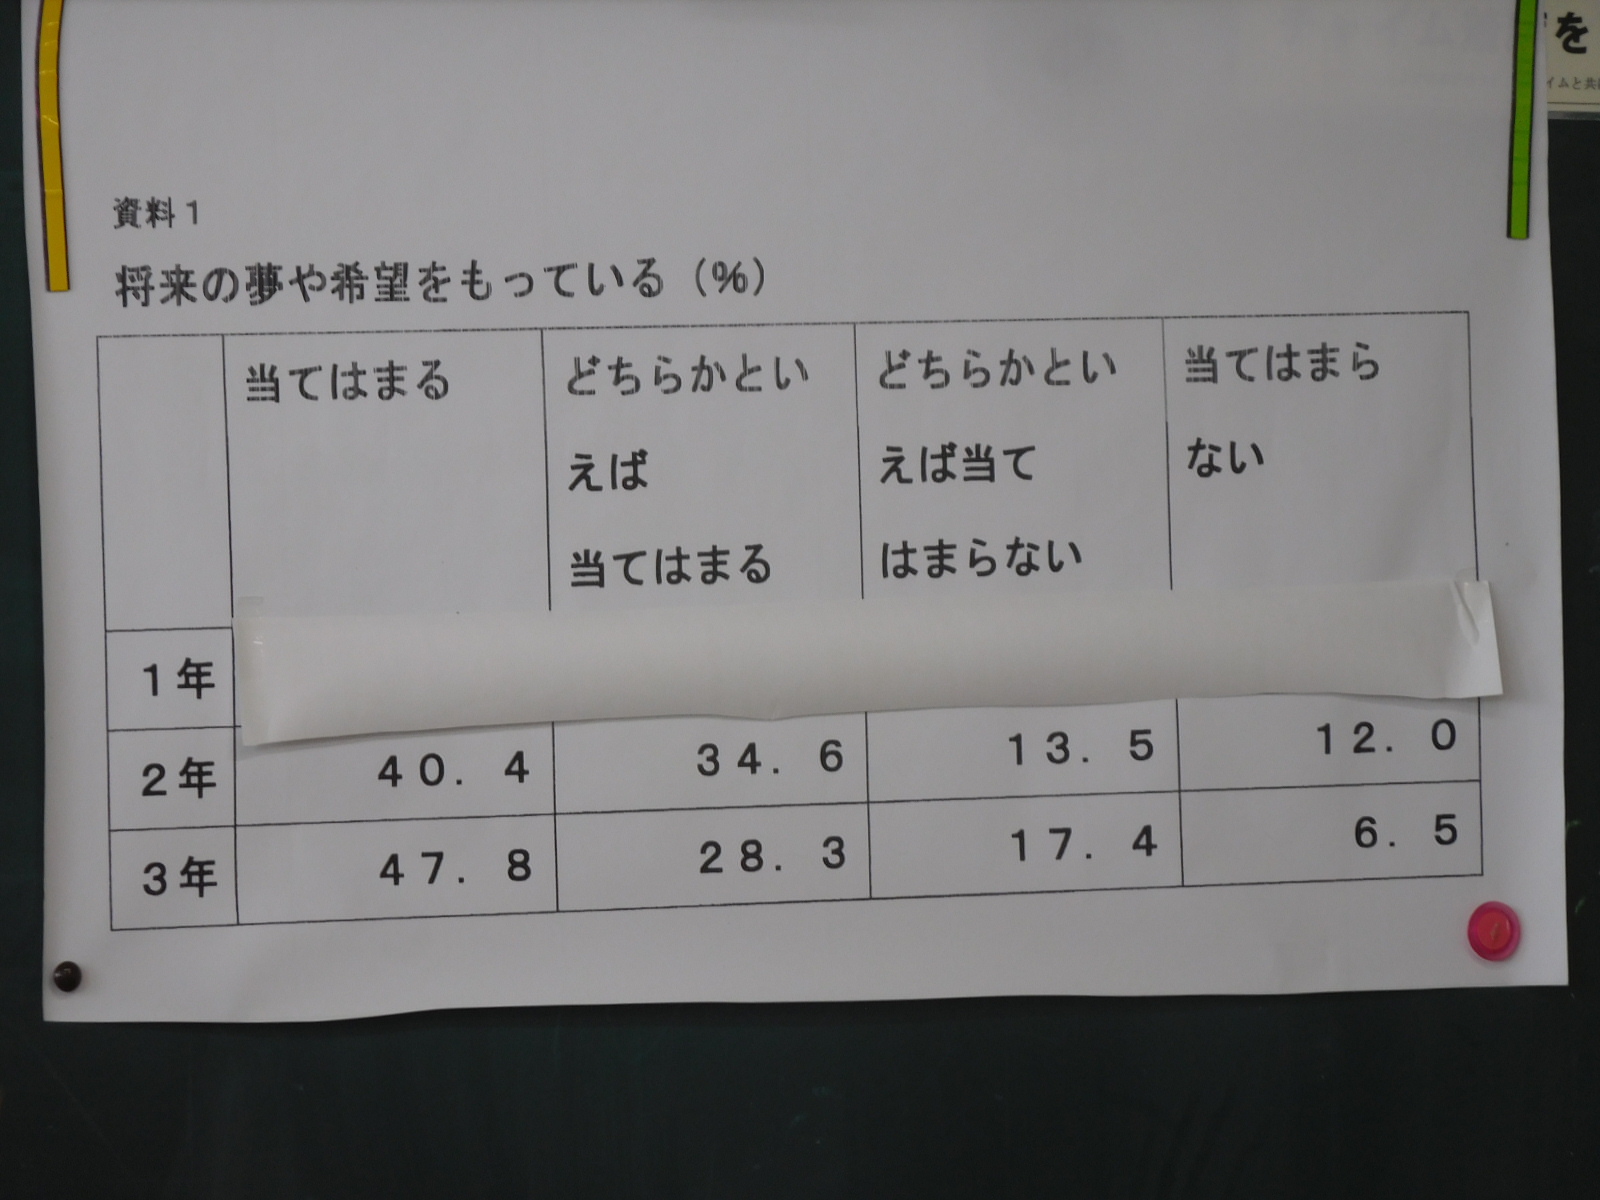 を
イムと共
資料１
将来の夢や希望をもっている（％）
当てはまる
どちらかとい
えば
当てはまる
どちらかとい
えば当て
はまらない
当てはまら
ない
１年
２年 ４０．４ ３４．６ １３．５ １２．０
３年 ４７．８ ２８．３ １７．４ ６．５